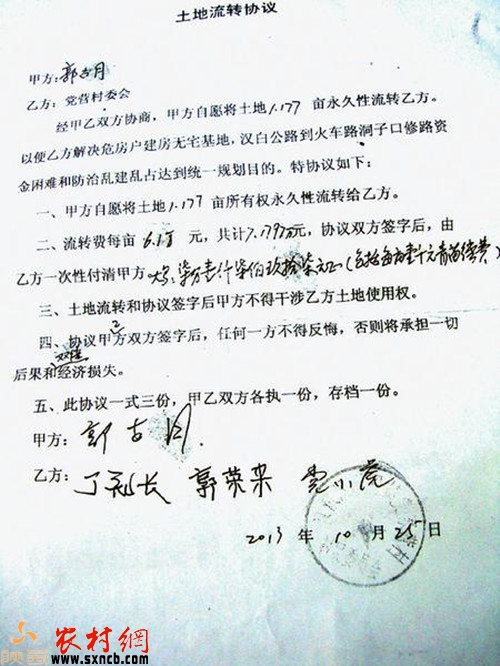 土地流转协议
甲方：郭古月
乙方：党营村委会
经甲乙双方协商，甲方自愿将土地1.177亩永久性流转乙方。
以便乙方解决危房户建房无宅基地，汉白公路到火车路洞子口修路资
金困难和防治乱建乱占达到统一规划目的。特协议如下：
一、甲方自愿将土地1.177亩所有权永久性流转给乙方。
二、流转费每亩6.1万元，共计7.1797万元，协议双方签字后，由
乙方一次性付清甲方大写：柒万壹仟柒佰玖拾柒元正（包括每亩壹千元青苗费）
三、土地流转和协议签字后甲方不得干涉乙方土地使用权。
四、协议甲乙方双方签字后，任何一方不得反悔，否则将承担一切
后果和双倍经济损失。
五、此协议一式三份，甲乙双方各执一份，存档一份。
甲方：郭古月
乙方：丁 长 郭荣 党小虎
2013年10月25日
陕西农村網
www.sxncb.com